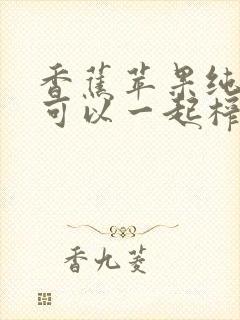 香蕉苹果纯
可以一起榨
香九菱